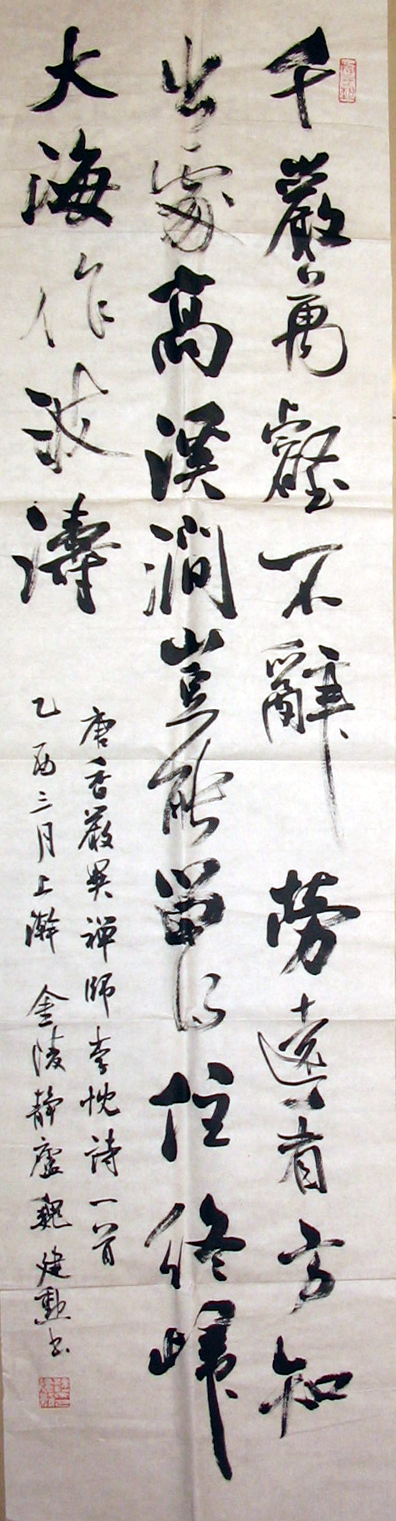 千巖萬壑不辭勞遠看方知
出處高溪澗豈能留得住終歸
大海作波濤
唐香嚴閑禪師李忱詩一首
乙酉三月上澣 金陵靜廬 魏建勳書